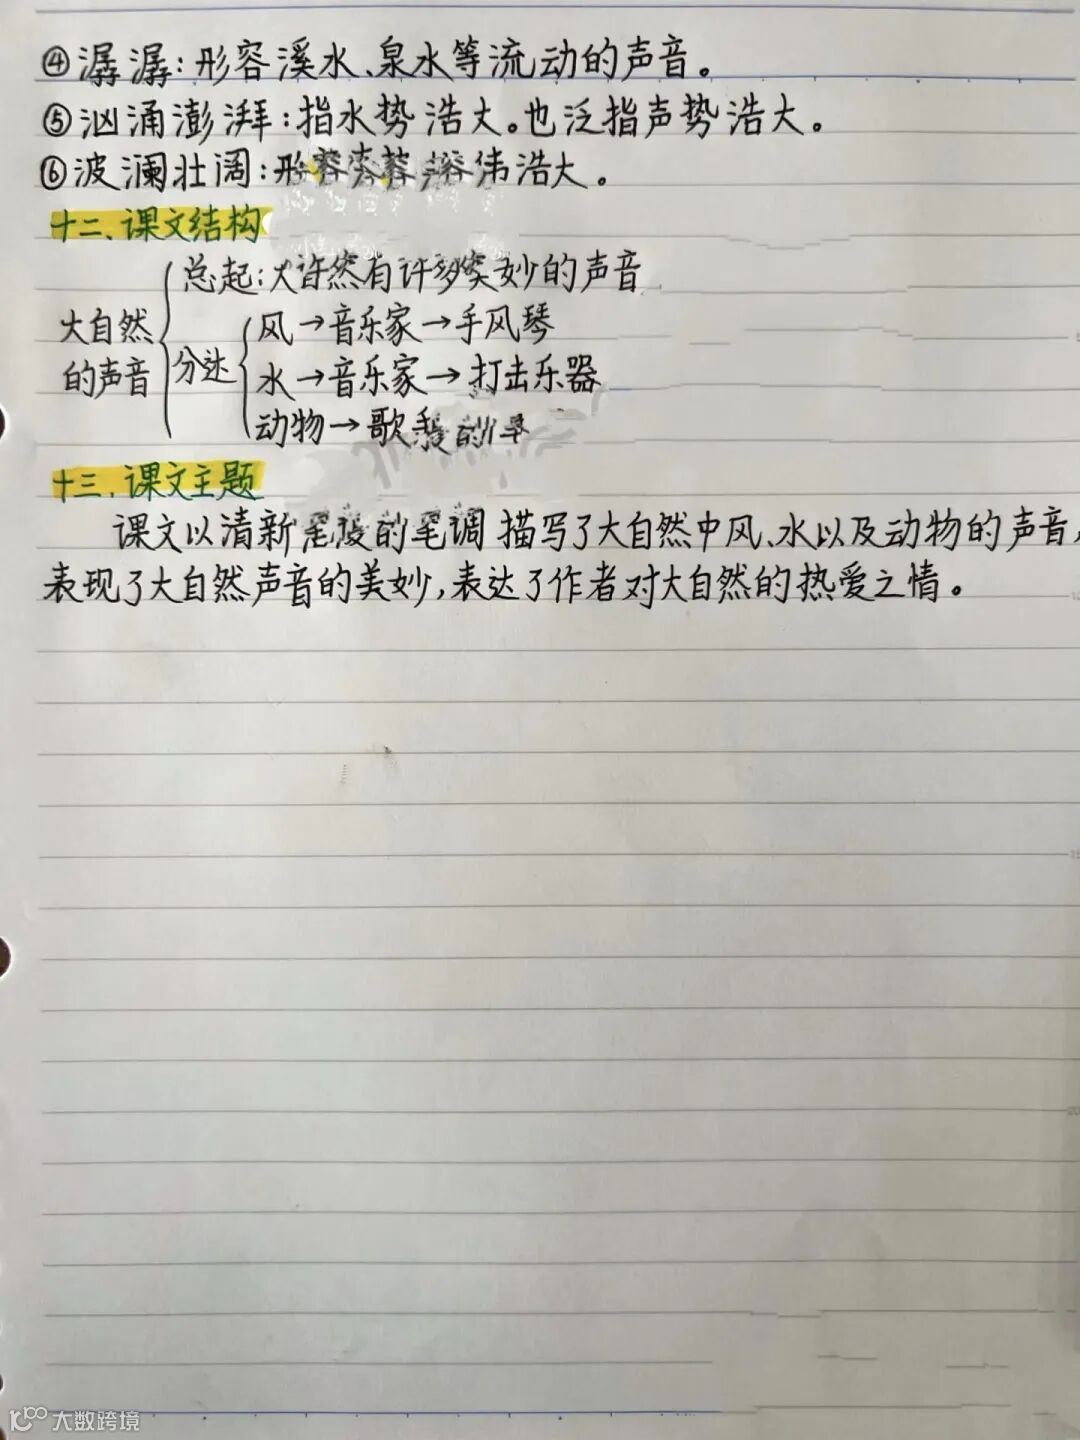 ④潺潺:形容溪水、泉水等流动的声音。
⑤汹涌澎湃:指水势浩大。也泛指声势浩大。
⑥波澜壮阔:形伟浩大。
十二、课文结构
总起:大然有许多美妙的声音
大自然的声音
分述
风→音乐家→手风琴
水→音乐家→打击乐器
动物→歌
十三、课文主题
课文以清新的笔调描写了大自然中风、水以及动物的声音,
表现了大自然声音的美妙,表达了作者对大自然的热爱之情。
大数跨境